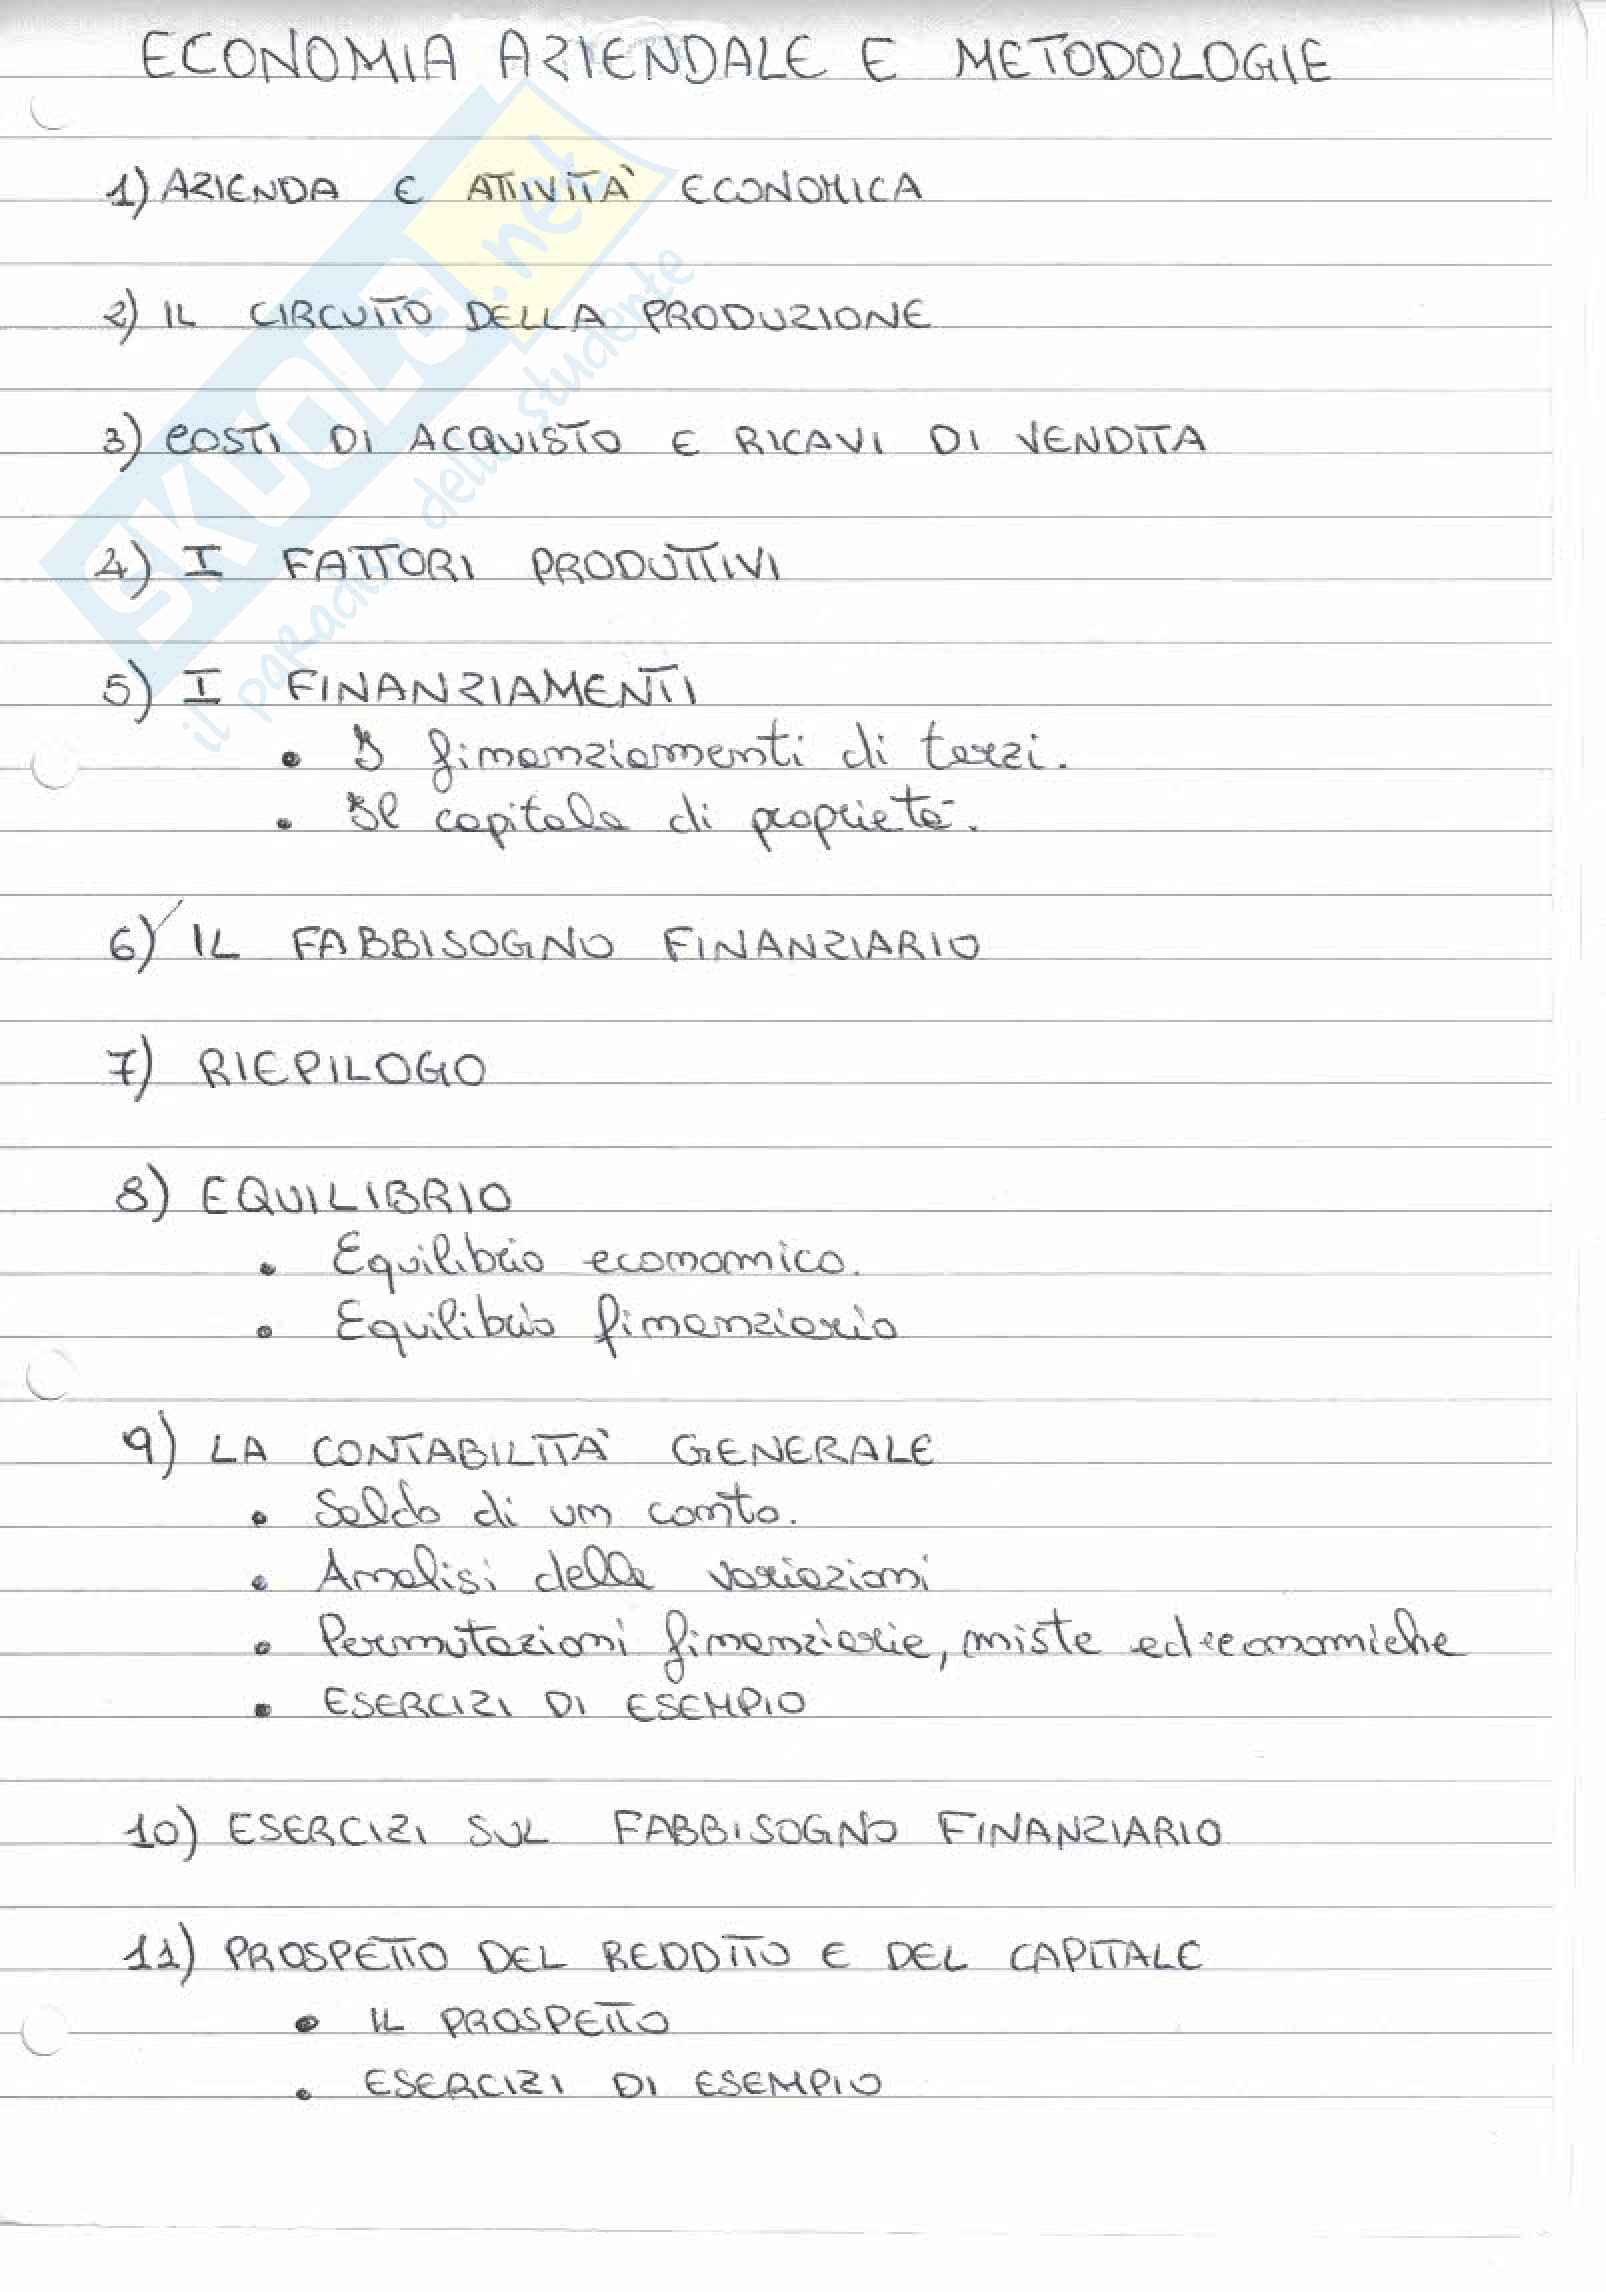 ECONOMIA AZIENDALE E METODOLOGIE
1) AZIENDA E ATTIVITA' ECONOMICA
2) IL CIRCUITO DELLA PRODUZIONE
3) COSTI DI ACQUISTO E RICAVI DI VENDITA
4) I FATTORI PRODUTTIVI
5) I FINANZIAMENTI
• I finanziamenti di terzi.
• Il capitale di proprietà.
6) IL FABBISOGNO FINANZIARIO
7) RIEPILOGO
8) EQUILIBRIO
• Equilibrio economico.
• Equilibrio finanziario
9) LA CONTABILITA' GENERALE
• Saldo di un conto.
• Analisi delle variazioni
• Permutazioni finanziarie, miste ed economiche
• ESERCIZI DI ESEMPIO
10) ESERCIZI SUL FABBISOGNO FINANZIARIO
11) PROSPETTO DEL REDDITO E DEL CAPITALE
• IL PROSPETTO
• ESERCIZI DI ESEMPIO
SKUOLa.net
il paradiso dello studente